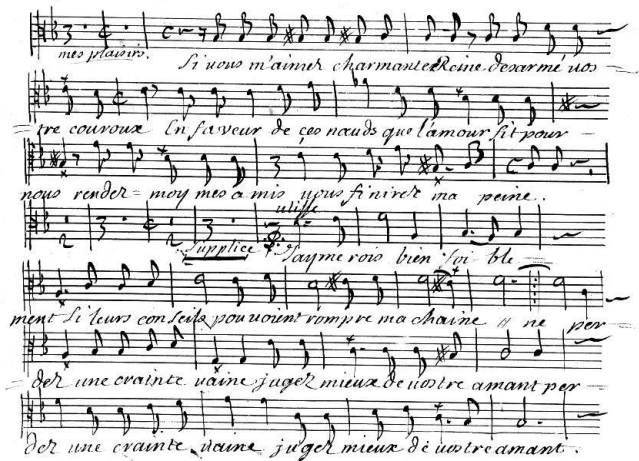 mes plaisirs. Si vous m'aimez charmante Reine desarmé vos =
= tre couroux En faveur de ces nœuds que l'amour fit pour =
nous rendez = moy mes amis vous finirez ma peine.
ulisse
Supplice J'aymerois bien foible =
ment si leurs conseils pouvoient rompre ma chaine ne per =
= dez une crainte vaine jugez mieux de vostre amant per =
dez une crainte vaine jugez mieux de vostre amant.